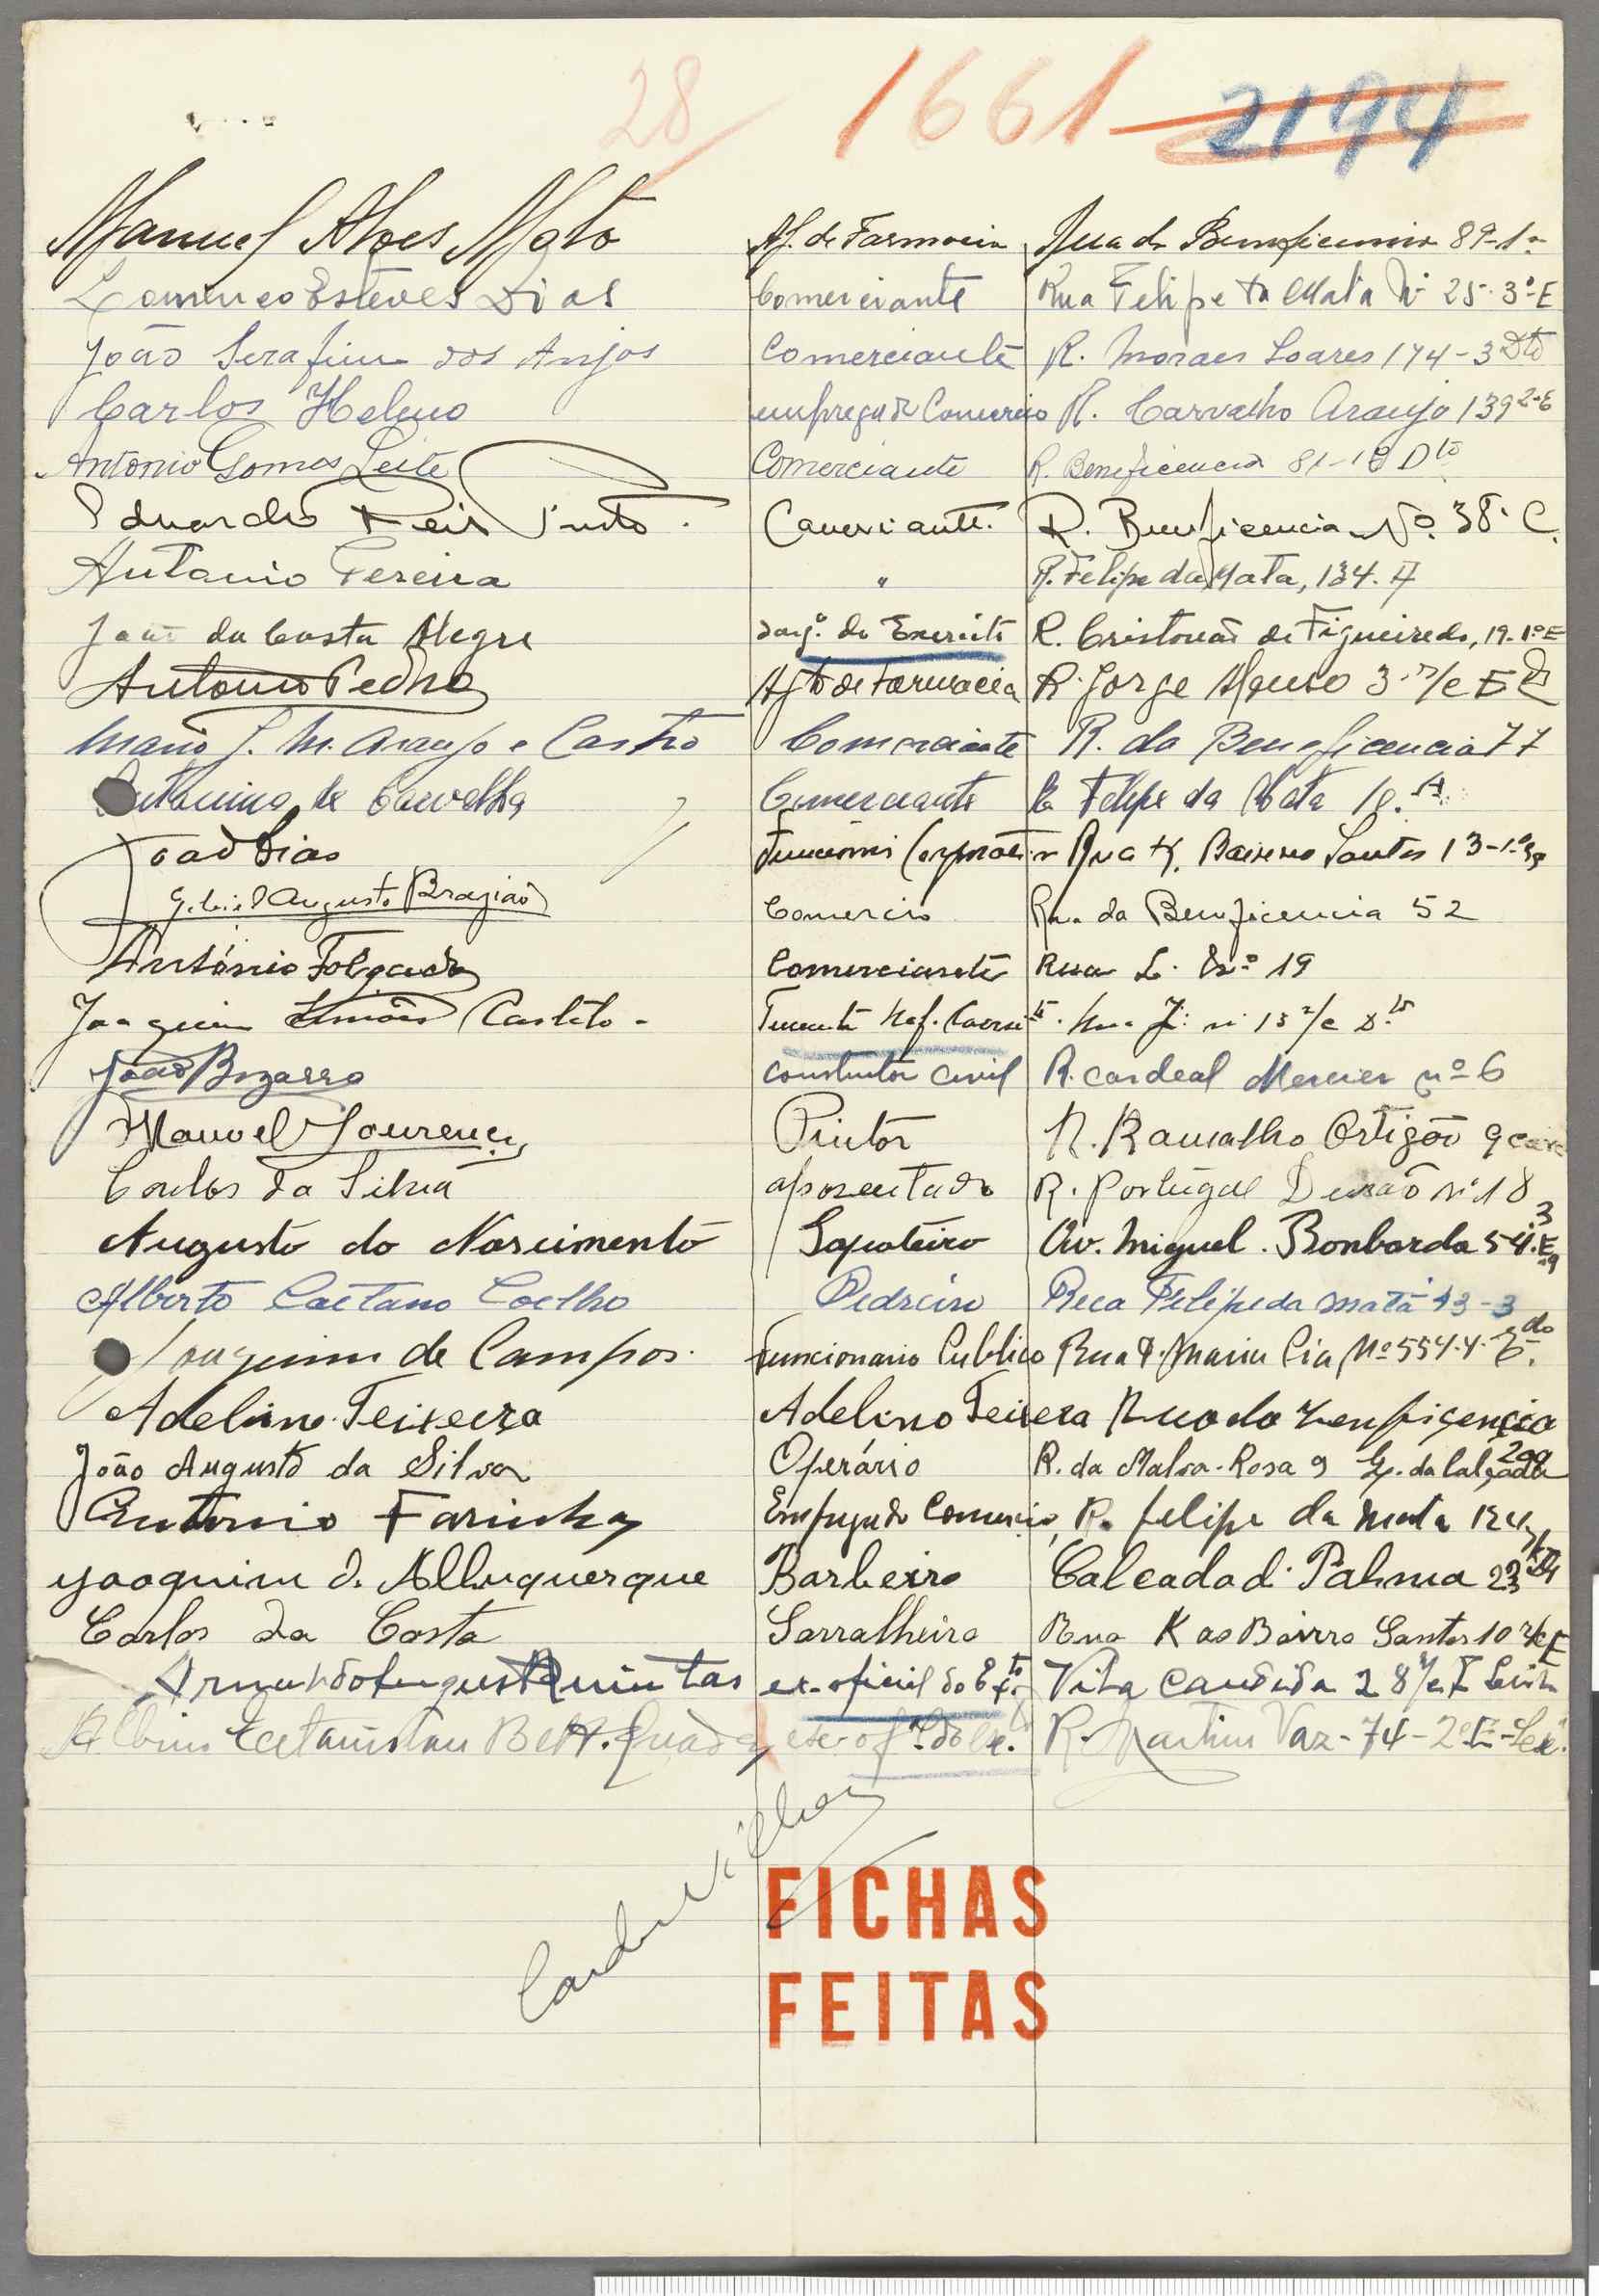 28 1661 2194
Manuel Alves Mato Aj. de Farmacia Rua da Beneficencia 89-1º
Esteves Dias Comerciante Rua Felipe da Mata Nº 25-3º-E
João Serafim dos Anjos Comerciante R. Moraes Soares 174-3 Dtº
Carlos Heleno empregado Comercio R. Carvalho Araujo 139 2-E
Antonio Gomes Leite Comerciante R. Beneficencia 81-1º Dto
Eduardo Reis Pinto. Comerciante. R. Beneficencia Nº. 38. C.
Antonio Pereira " R. Felipe da Mata, 134. A
João da Costa Alegre Sargº. do Exercito R. Cristovão de Figueiredo, 19-1º E
Antonio Pedro Ajte de Farmacia R. Jorge Afonso 3 r/c E
Mario J. M. Araujo e Castro Comerciante R. da Beneficencia 77
Antonino de Carvalho Comerciante R. Felipe da Mata
João Dias Rua K. Bairro Santos 13-1º
Gabriel Augusto Bragião Comercio Rua da Beneficencia 52
António Folgado Comerciante Rua L. Nº 19
Joaquim Simões Castelo Tenente
João Bizarro Construtor Civil R. Cardeal Mercier nº 6
Manoel Lourenço Pintor R. Ramalho Ortigão 9 cave
Carlos da Silva aposentado R. Portugal Durão Nº 18
Augusto do Nascimento Sapateiro Av. Miguel Bombarda 54. 3 Esq
Alberto Caetano Coelho Pedreiro Rua Felipe da Mata 43-3
Joaquim de Campos. Funcionario Publico Rua D. Maria Pia Nº 554
Adelino Teixeira Adelino Teixeira Rua da
João Augusto da Silva Operário R. da Malva-Rosa 9
Antonio Farinha Empregado Comercio, R. felipe da Mata
Joaquim d. Albuquerque Barbeiro Calcada d. Palma 23
Carlos da Costa Serralheiro Rua K ao Bairro Santos 10 r/c E
Armando Augusto Quintas ex-oficial do Exto. Vila Candida 28 r/c E Lisboa
R. Martim Vaz-74-2º E-Lx.
FICHAS
FEITAS